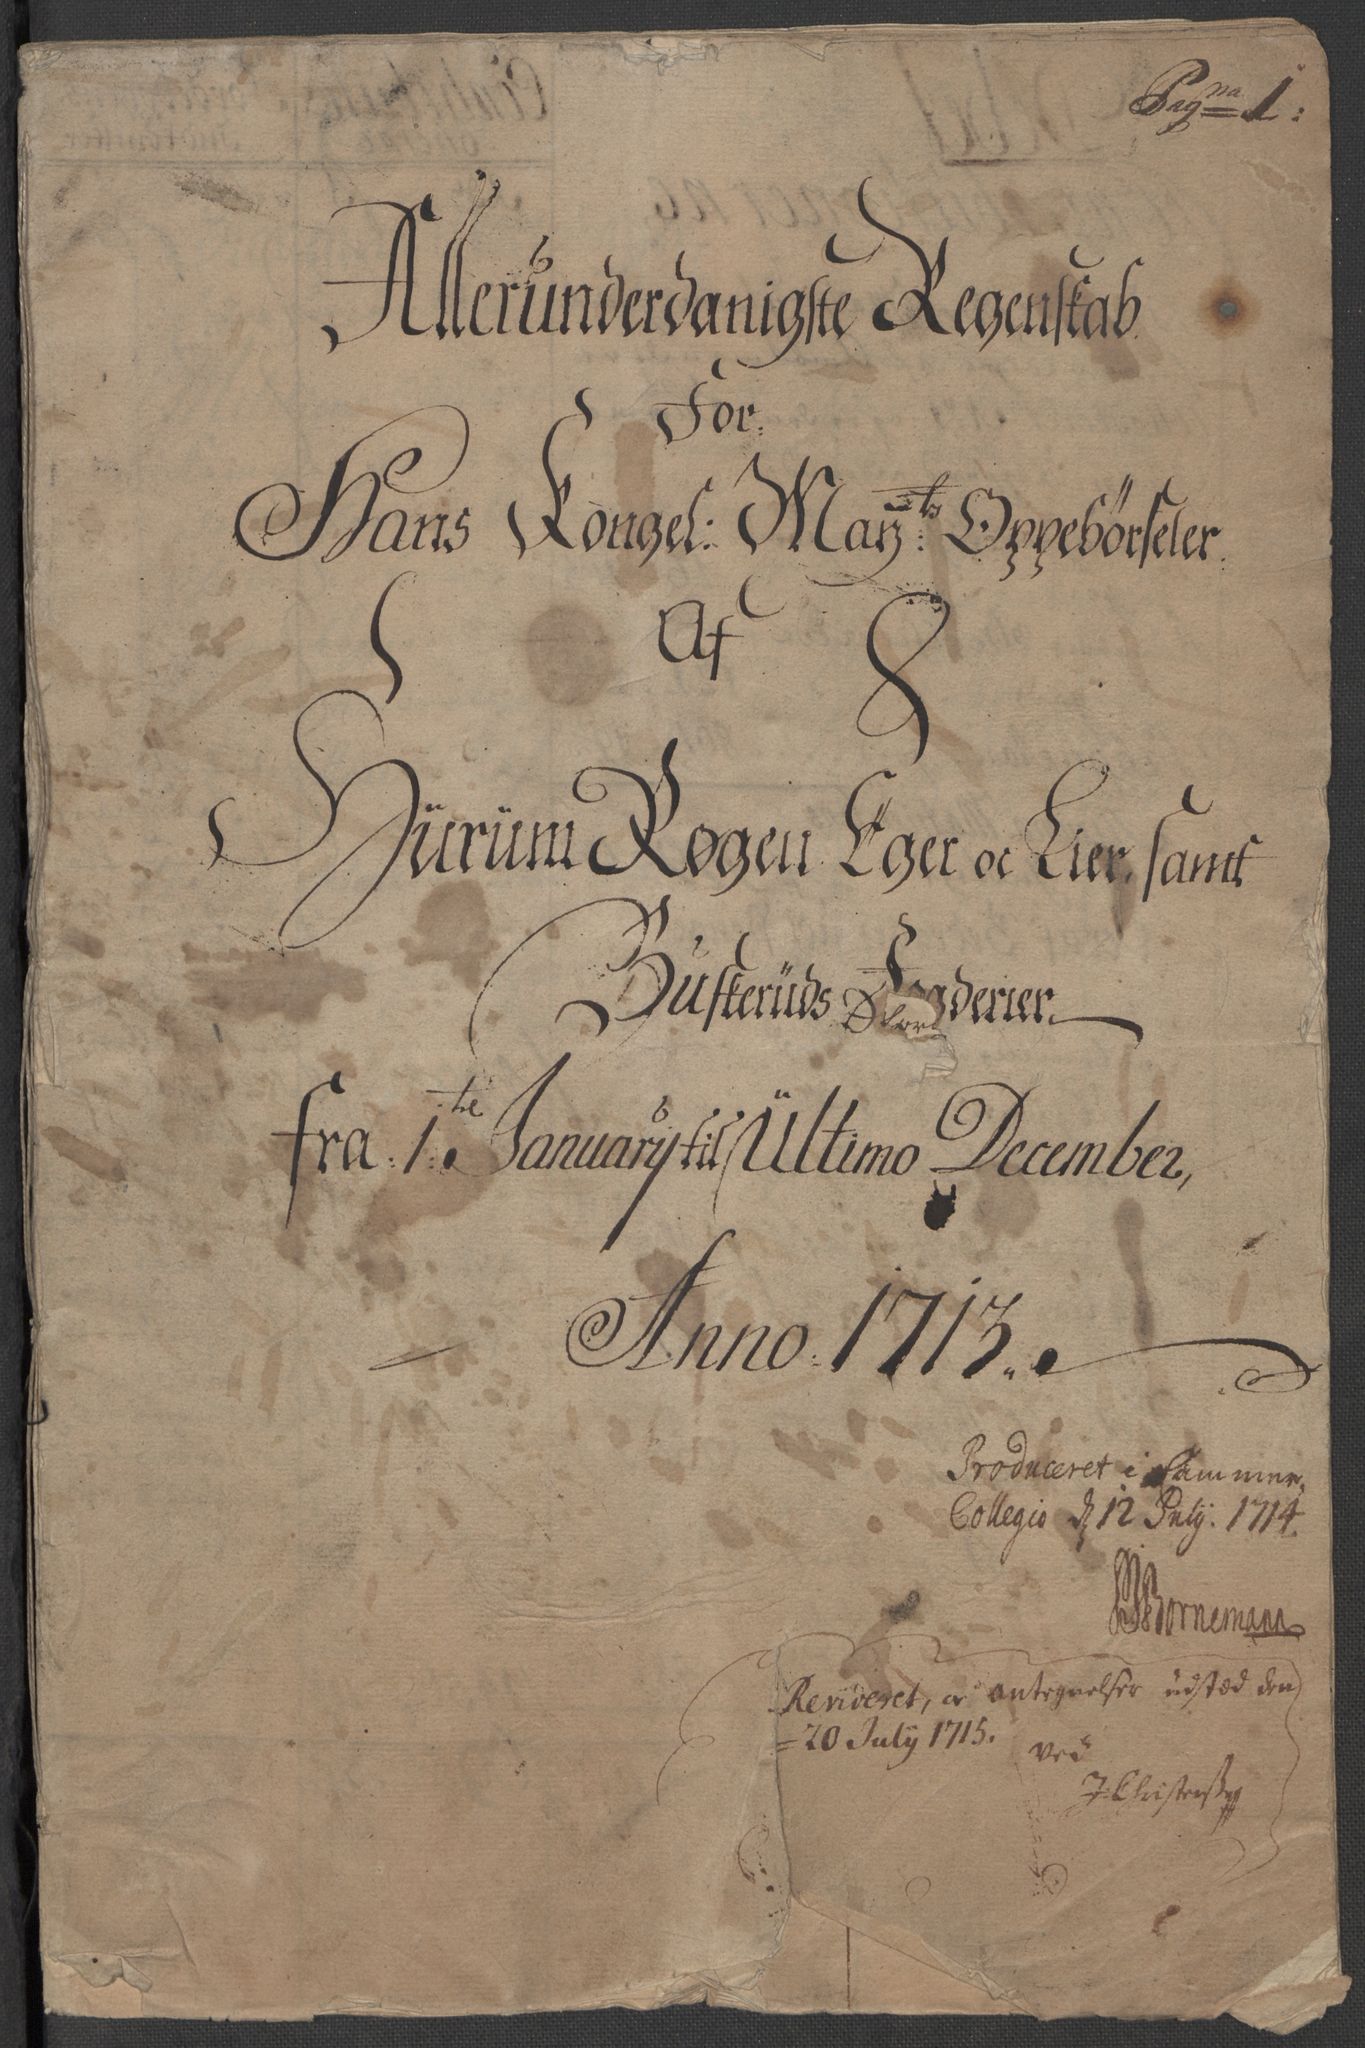 Pag na 1:
Allerunderdanigste Regenskab
For.
Hans Kongel: May ts: Oppebörseler.
Af
Hürüm Røgen Eger oc Lier, samt
Büskerüds Fogderier.
fra 1 te January til Ültimo December,
Anno 1713.
Produceret i Cammer
Collegio d 12 July. 1714.
Bornemann
Revideret, oc antegnelser üdstæd den
20 July 1715.
ved